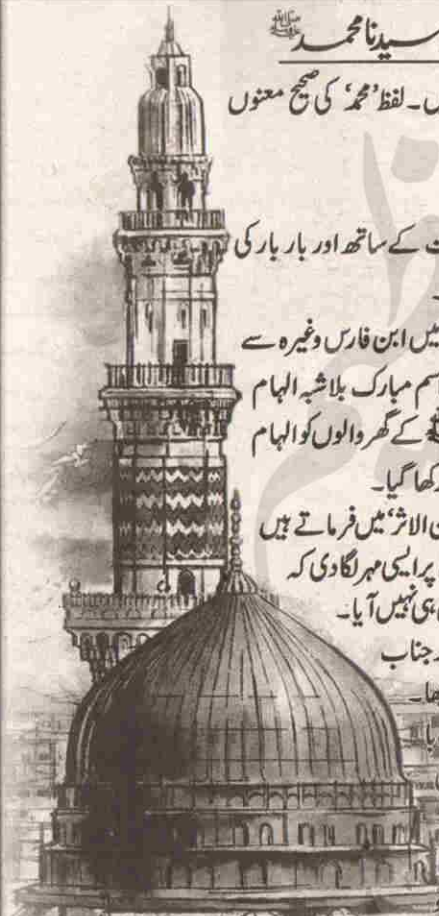 سیدنا محمد ﷺ
ں۔ لفظ 'محمد' کی صحیح معنوں
ت کے ساتھ اور بار بار کی
۔
میں ابن فارس وغیرہ سے
سم مبارک بلاشبہ الہام
ﷺ کے گھر والوں کو الہام
کھا گیا۔
ن الاثر' میں فرماتے ہیں
پر ایسی مہر لگا دی کہ
ہی نہیں آیا۔
جناب
ھا۔
با